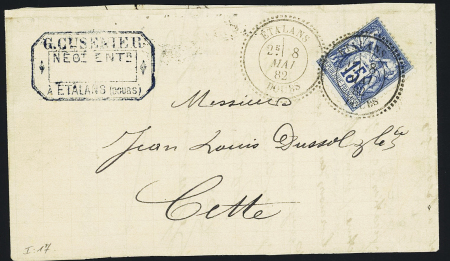 G. CUSENIER
NÉGT ENTR
À ÉTALANS (DOUBS)
ÉTALANS
2E 8
MAI
82
DOUBS
15
Messieurs
Jean Louis Dussol & Cie
Cette
I-17